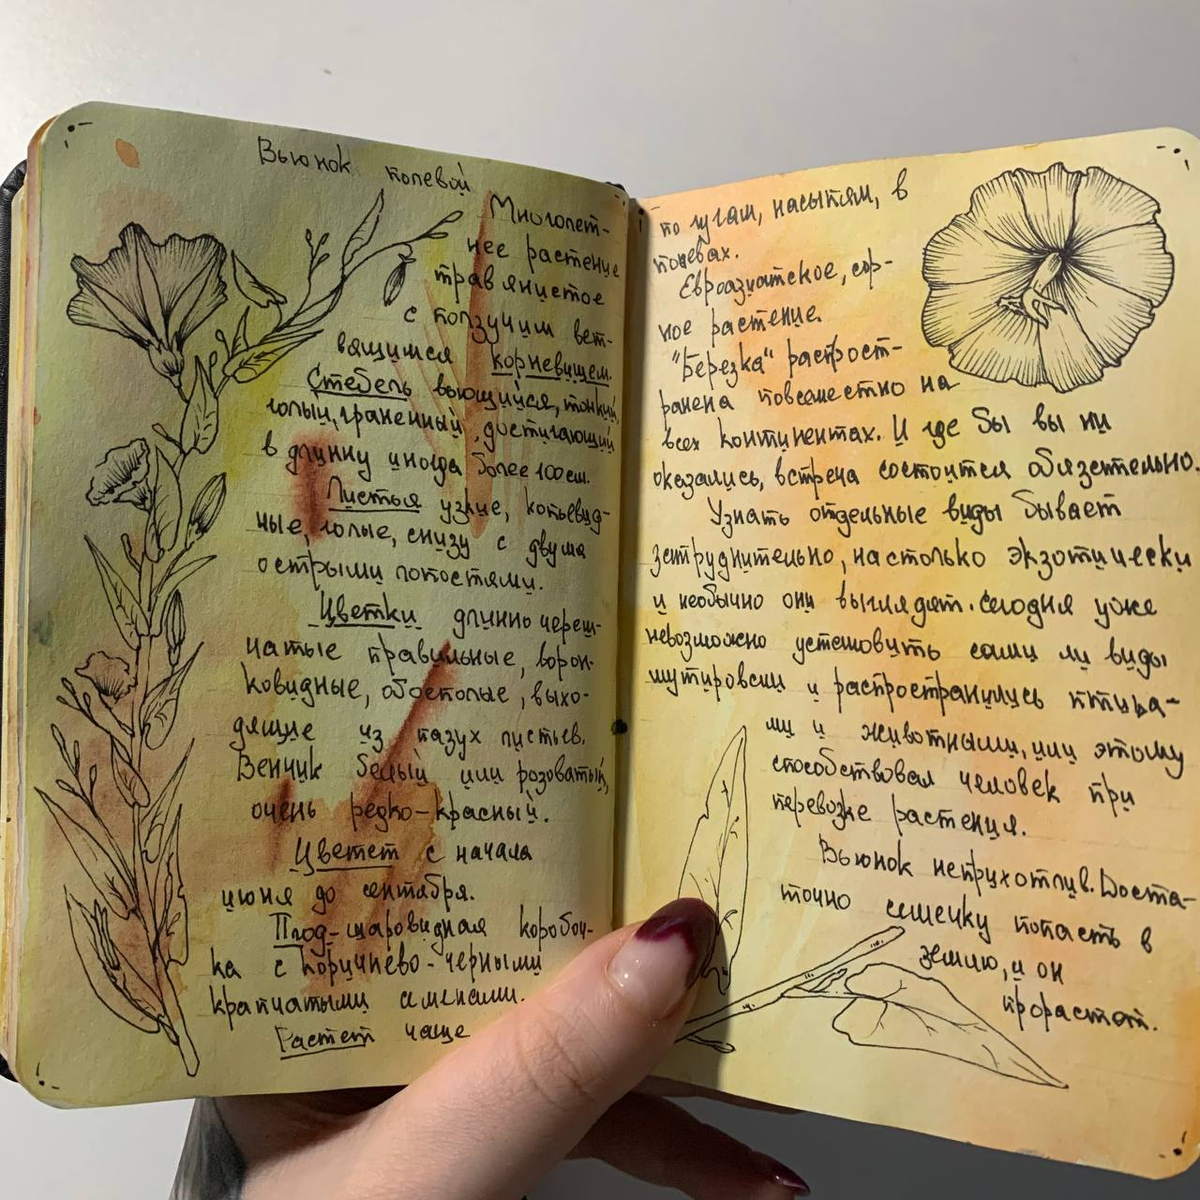 Вьюнок полевой
Многолет-
нее растение
травянистое
с ползучим вет-
ващимся корневищем.
Стебель вьющийся, тонкий,
голый, граненный, достигающий
в длинну иногда более 100 см.
Листья узкие, копьевид-
ные, голые, снизу с двумя
острыми лопостями.
Цветки длинно череш-
чатые правильные, ворон-
ковидные, обостолые, выхо-
дящие из пазух листьев.
Венчик белый или розоватый,
очень редко-красный.
Цветет с начала
июня до сентября.
Плод-шаровидная коробоч-
ка с коричнево-черными
крапчатыми семенами.
Растет чаще
по лугам, насыпям, в
полевах.
Евроазиатское, сор-
ное растение.
"Березка" распрост-
ранена повсеместно на
всех континентах. И где бы вы ни
оказались, встреча состоится обязательно.
Узнать отдельные виды бывает
затруднительно, настолько экзотически
и необычно они выглядят. Сегодня уже
невозможно установить сами ли виды
мутировали и распространились птица-
ми и животными, или этому
способствовал человек при
перевозке растения.
Вьюнок неприхотлив. Доста-
точно семечку попасть в
землю, и он
прорастет.